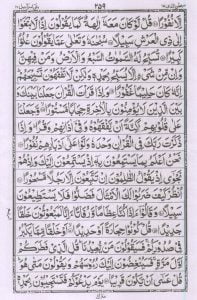 ٢٥٩
اِلَّا نُفُوْرًا ۝ قُلْ لَّوْ كَانَ مَعَهٗۤ اٰلِهَةٌ كَمَا يَقُوْلُوْنَ اِذًا لَّابْتَغَوْا
اِلٰى ذِى الْعَرْشِ سَبِيْلًا ۝ سُبْحٰنَهٗ وَتَعٰلٰى عَمَّا يَقُوْلُوْنَ عُلُوًّا
كَبِيْرًا ۝ تُسَبِّحُ لَهُ السَّمٰوٰتُ السَّبْعُ وَالْاَرْضُ وَمَنْ فِيْهِنَّ
وَاِنْ مِّنْ شَىْءٍ اِلَّا يُسَبِّحُ بِحَمْدِهٖ وَلٰكِنْ لَّا تَفْقَهُوْنَ تَسْبِيْحَهُمْ
اِنَّهٗ كَانَ حَلِيْمًا غَفُوْرًا ۝ وَاِذَا قَرَاْتَ الْقُرْاٰنَ جَعَلْنَا بَيْنَكَ
وَبَيْنَ الَّذِيْنَ لَا يُؤْمِنُوْنَ بِالْاٰخِرَةِ حِجَابًا مَّسْتُوْرًا ۝ وَّجَعَلْنَا
عَلٰى قُلُوْبِهِمْ اَكِنَّةً اَنْ يَّفْقَهُوْهُ وَفِىْۤ اٰذَانِهِمْ وَقْرًا وَاِذَا
ذَكَرْتَ رَبَّكَ فِى الْقُرْاٰنِ وَحْدَهٗ وَلَّوْا عَلٰۤى اَدْبَارِهِمْ نُفُوْرًا ۝
نَحْنُ اَعْلَمُ بِمَا يَسْتَمِعُوْنَ بِهٖۤ اِذْ يَسْتَمِعُوْنَ اِلَيْكَ وَاِذْ هُمْ
نَجْوٰۤى اِذْ يَقُوْلُ الظّٰلِمُوْنَ اِنْ تَتَّبِعُوْنَ اِلَّا رَجُلًا مَّسْحُوْرًا ۝
اُنْظُرْ كَيْفَ ضَرَبُوْا لَكَ الْاَمْثَالَ فَضَلُّوْا فَلَا يَسْتَطِيْعُوْنَ
سَبِيْلًا ۝ وَقَالُوْۤا ءَاِذَا كُنَّا عِظَامًا وَّرُفَاتًا ءَاِنَّا لَمَبْعُوْثُوْنَ خَلْقًا
جَدِيْدًا ۝ قُلْ كُوْنُوْا حِجَارَةً اَوْ حَدِيْدًا ۝ اَوْ خَلْقًا مِّمَّا يَكْبُرُ
فِىْ صُدُوْرِكُمْ فَسَيَقُوْلُوْنَ مَنْ يُّعِيْدُنَا قُلِ الَّذِىْ فَطَرَكُمْ
اَوَّلَ مَرَّةٍ فَسَيُنْغِضُوْنَ اِلَيْكَ رُءُوْسَهُمْ وَيَقُوْلُوْنَ مَتٰى هُوَ
قُلْ عَسٰۤى اَنْ يَّكُوْنَ قَرِيْبًا ۝ يَوْمَ يَدْعُوْكُمْ فَتَسْتَجِيْبُوْنَ بِحَمْدِهٖ